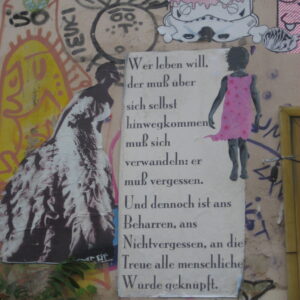 Wer leben will,
der muß über
sich selbst
hinwegkommen,
muß sich
verwandeln: er
muß vergessen.
Und dennoch ist ans
Beharren, ans
Nichtvergessen, an die
Treue alle menschliche
Würde geknüpft.